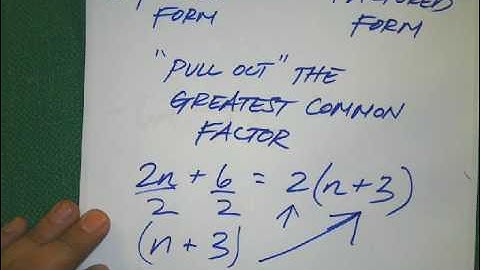 FORM
FORM
"PULL OUT" THE
GREATEST COMMON
FACTOR
2n/2 + 6/2 = 2(n+3)
(n + 3)